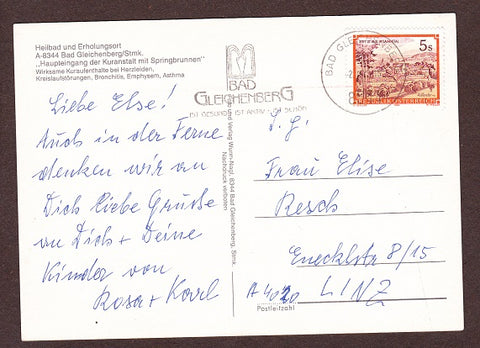 Heilbad und Erholungsort
A-8344 Bad Gleichenberg/Stmk.
„Haupteingang der Kuranstalt mit Springbrunnen"
Wirksame Kuraufenthalte bei Herzleiden,
Kreislaufstörungen, Bronchitis, Emphysem, Asthma
Liebe Else!
Auch in der Ferne
denken wir an
Dich liebe Grüße
an Dich + Deine
Kinder von
Rosa + Karl
BAD
GLEICHENBERG
BAD GLEICHENBERG
5s
REPUBLIK ÖSTERREICH
Verlag Wurm-Nagl, 8344 Bad Gleichenberg, Stmk.
Nachdruck verboten
S.g.
Frau Elise
Resch
Enecklstr 8/15
A 4020 LINZ
Postleitzahl